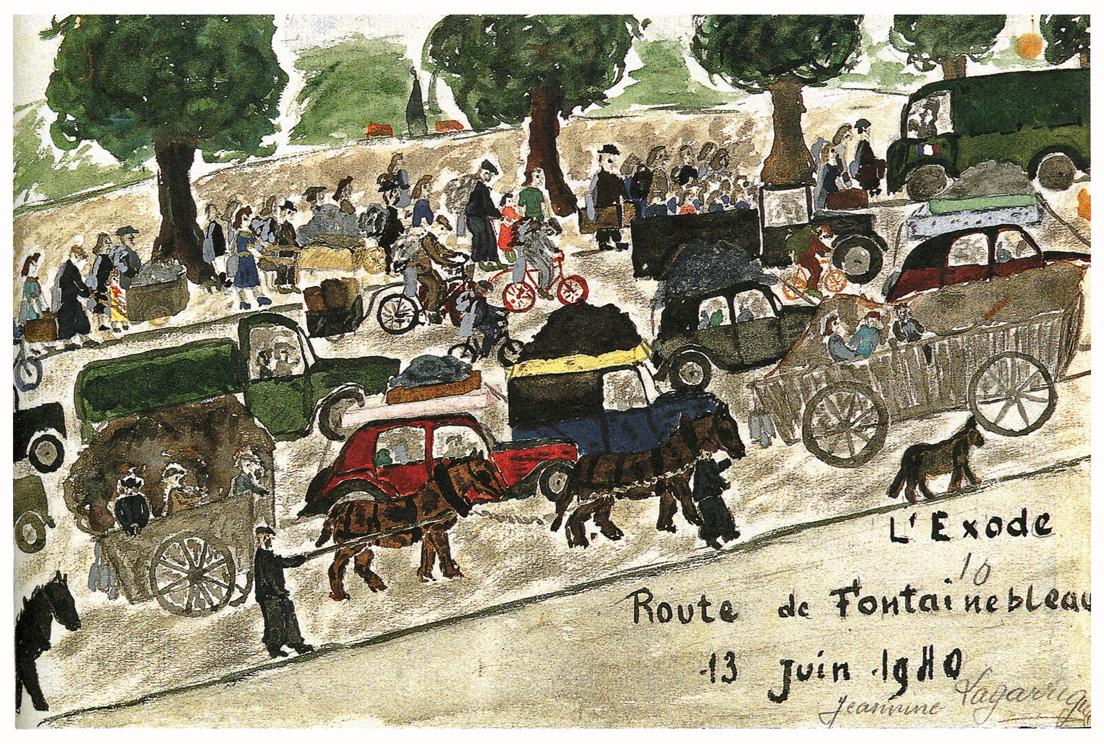 L'Exode
10
Route de Fontainebleau
13 Juin 1940
Jeannine Lagarrigue